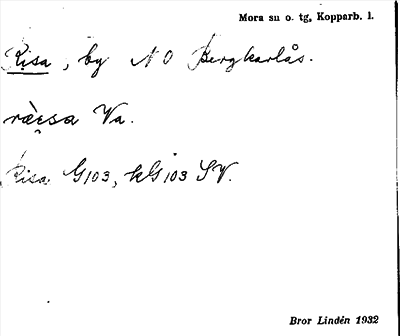 Mora sn o. tg, Kopparb. l.
Risa, by NO Bergkarlås.
Va.
Risa G103, kG103 SV.
Bror Lindén 1932